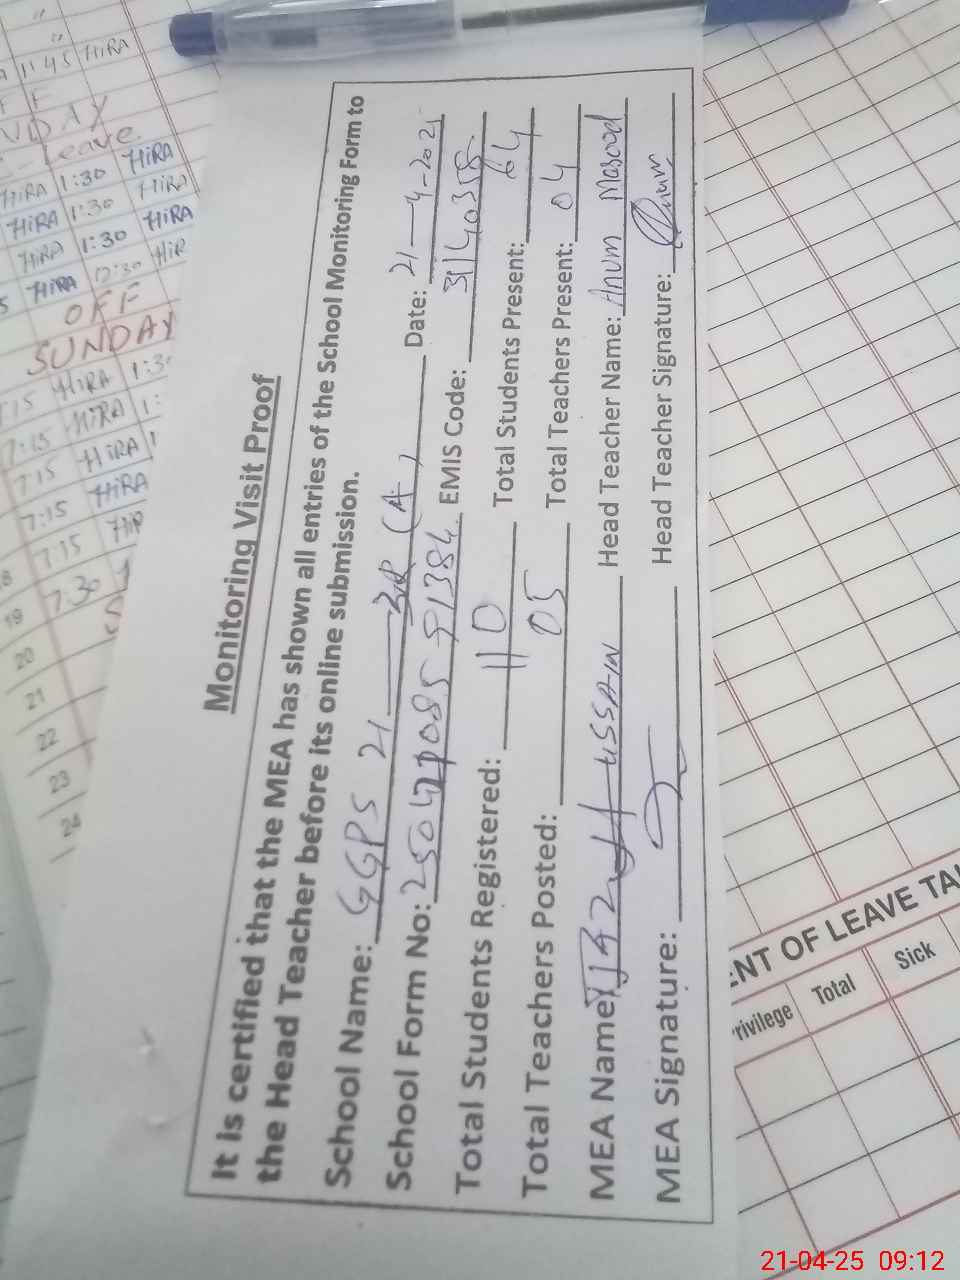 Monitoring Visit Proof
It is certified that the MEA has shown all entries of the School Monitoring Form to
the Head Teacher before its online submission.
School Name: GGPS 21 3R (A) Date: 21-4-2025
School Form No: EMIS Code:
Total Students Registered: 110 Total Students Present: 64
Total Teachers Posted: 05 Total Teachers Present: 04
MEA Name: HUSSAIN Head Teacher Name: Anum Masood
MEA Signature: Head Teacher Signature: Anum
11:45 HIRA
Leave
HIRA 1:30 HIRA
HIRA 1:30 HIRA
HIRA 1:30 HIRA
HIRA 12:30
OFF
SUNDAY
HIRA
7:15 HIRA
7:15 HIRA
7:15 HIRA
7:15
7:30
19
20
21
22
23
24
OF LEAVE
Total Sick
21-04-25 09:12